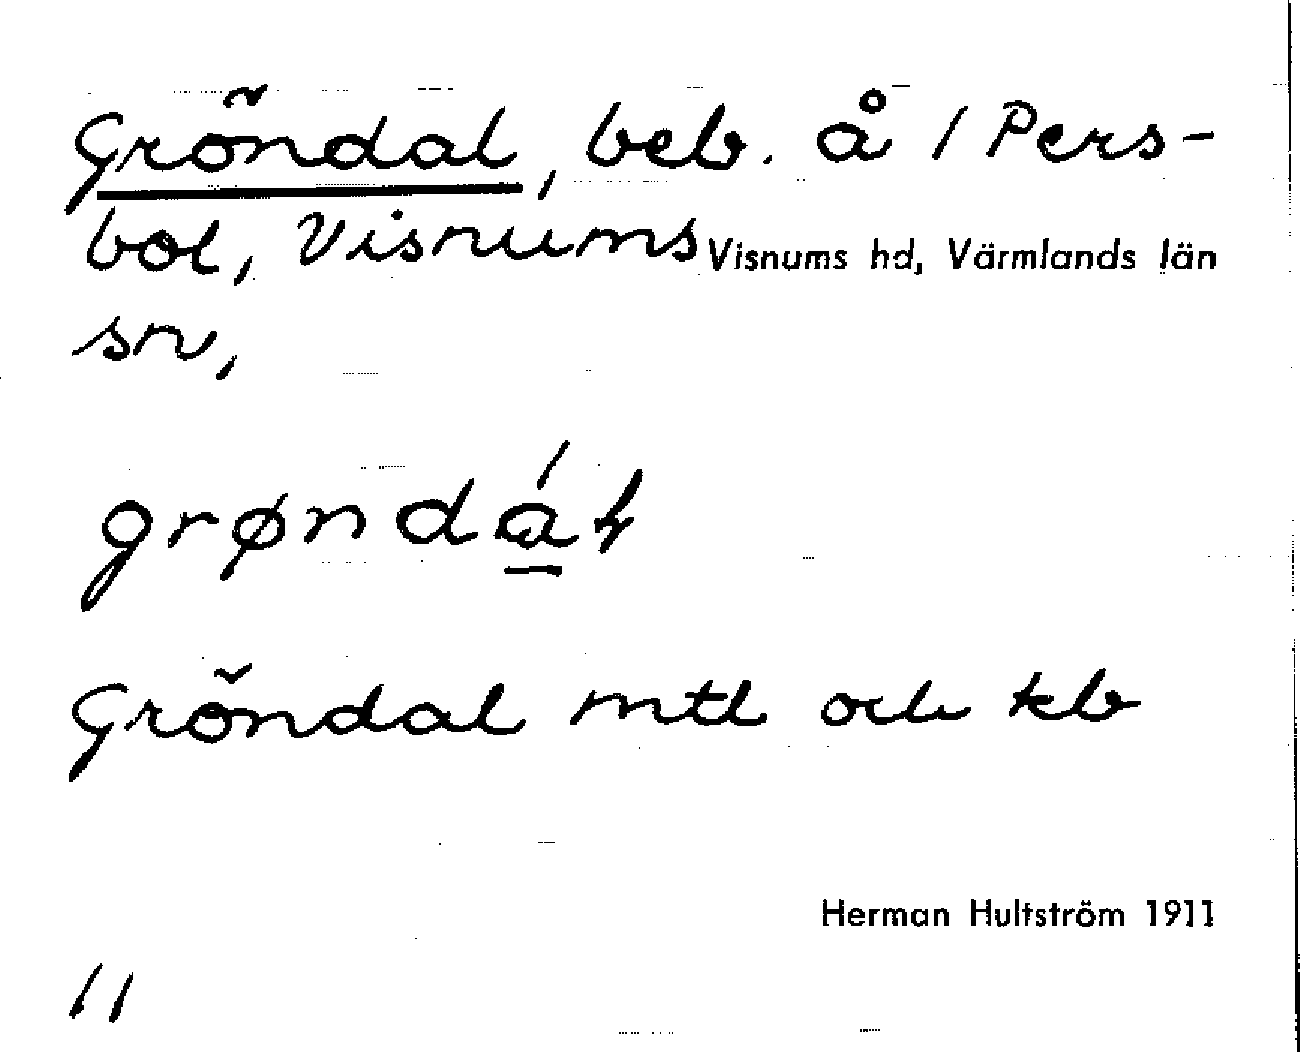 Gröndal, beb. å 1 Pers-
bol, Visnums Visnums hd, Värmlands län
sn,
Gröndal mtl och kb
Herman Hultström 1911
11